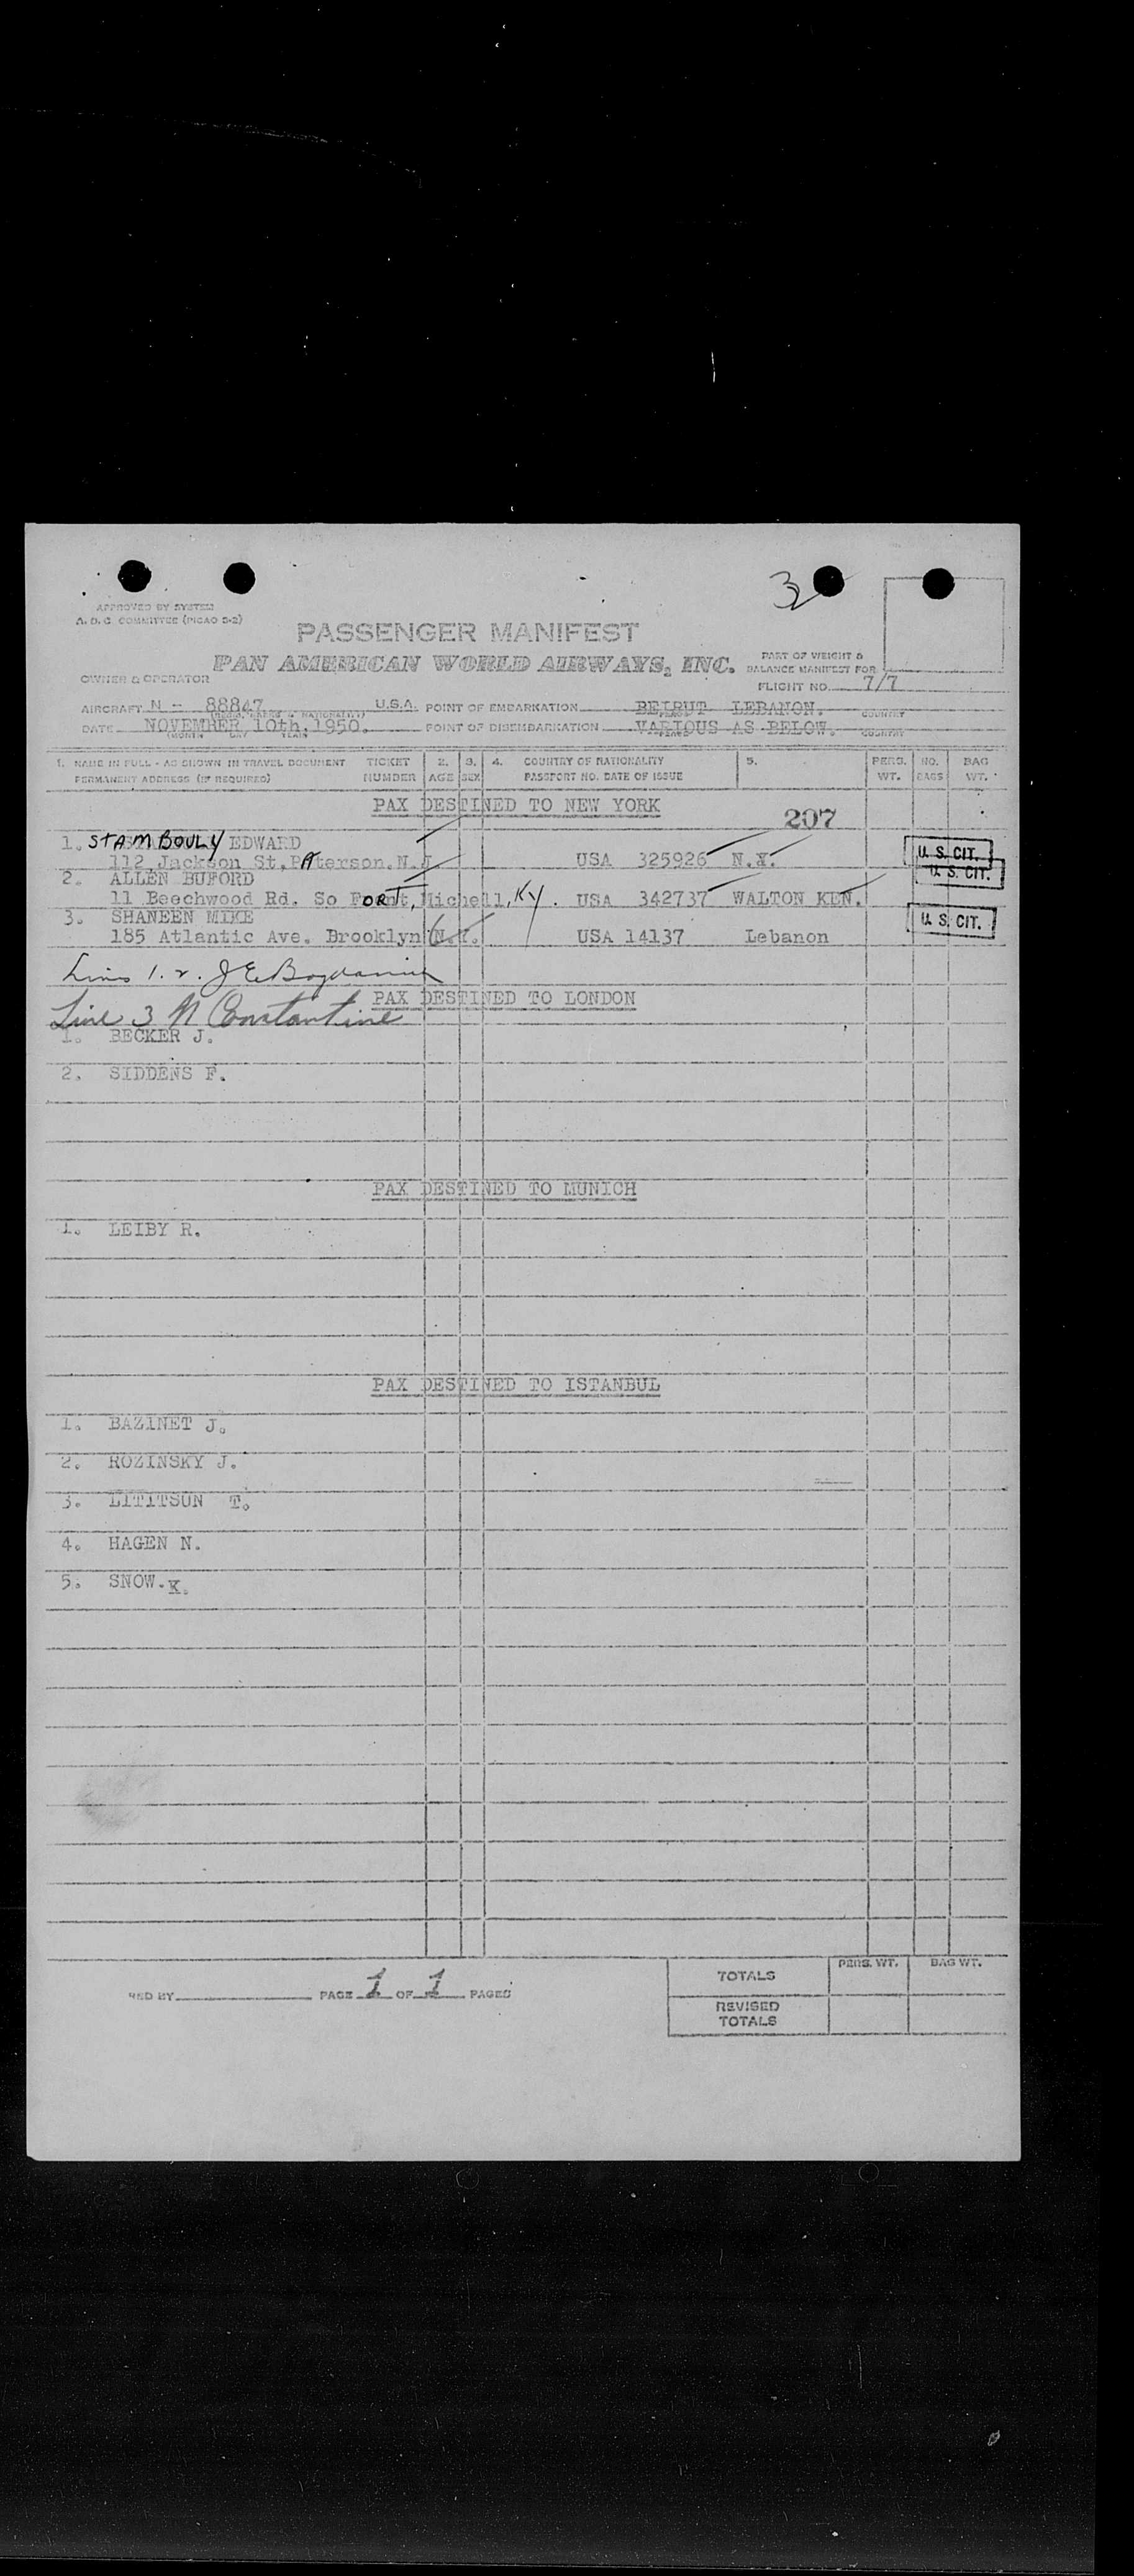 3
APPROVED BY SYSTEM
A.D.C. COMMITTEE (PICAO 5-2)
PASSENGER MANIFEST
PAN AMERICAN WORLD AIRWAYS, INC.
PART OF WEIGHT &
BALANCE MANIFEST FOR
OWNER & OPERATOR
FLIGHT NO. 7/7
AIRCRAFT N - 88847 U.S.A. POINT OF EMBARKATION BEIRUT LEBANON.
(REGS. MARKS & NATIONALITY) PLACE COUNTRY
DATE NOVEMBER 10th, 1950. POINT OF DISEMBARKATION VARIOUS AS BELOW.
(MONTH DAY YEAR PLACE COUNTRY
1. NAME IN FULL - AS SHOWN IN TRAVEL DOCUMENT TICKET 2. 3. 4. COUNTRY OF NATIONALITY 5. PERS. NO. BAG
PERMANENT ADDRESS (IF REQUIRED) NUMBER AGE SEX PASSPORT NO. DATE OF ISSUE WT. BAGS WT.
PAX DESTINED TO NEW YORK
207
1. STAMBOULY EDWARD
112 Jackson St, PATerson. N.J USA 325926 N.Y. U.S. CIT.
2. ALLEN BUFORD U.S. CIT.
11 Beechwood Rd. So FORT, Michell, Ky. USA 342737 WALTON KEN.
3. SHANEEN MIKE U.S. CIT.
185 Atlantic Ave. Brooklyn (N.Y. USA 14137 Lebanon
1. 2. J E
PAX DESTINED TO LONDON
Line 3 N Constantine
1. BECKER J.
2. SIDDENS F.
PAX DESTINED TO MUNICH
1. LEIBY R.
PAX DESTINED TO ISTANBUL
1. BAZINET J.
2. ROZINSKY J.
3. LITITSON T.
4. HAGEN N.
5. SNOW. K.
PERS. WT. BAG WT.
TOTALS
RED BY PAGE 1 OF 1 PAGES
REVISED
TOTALS